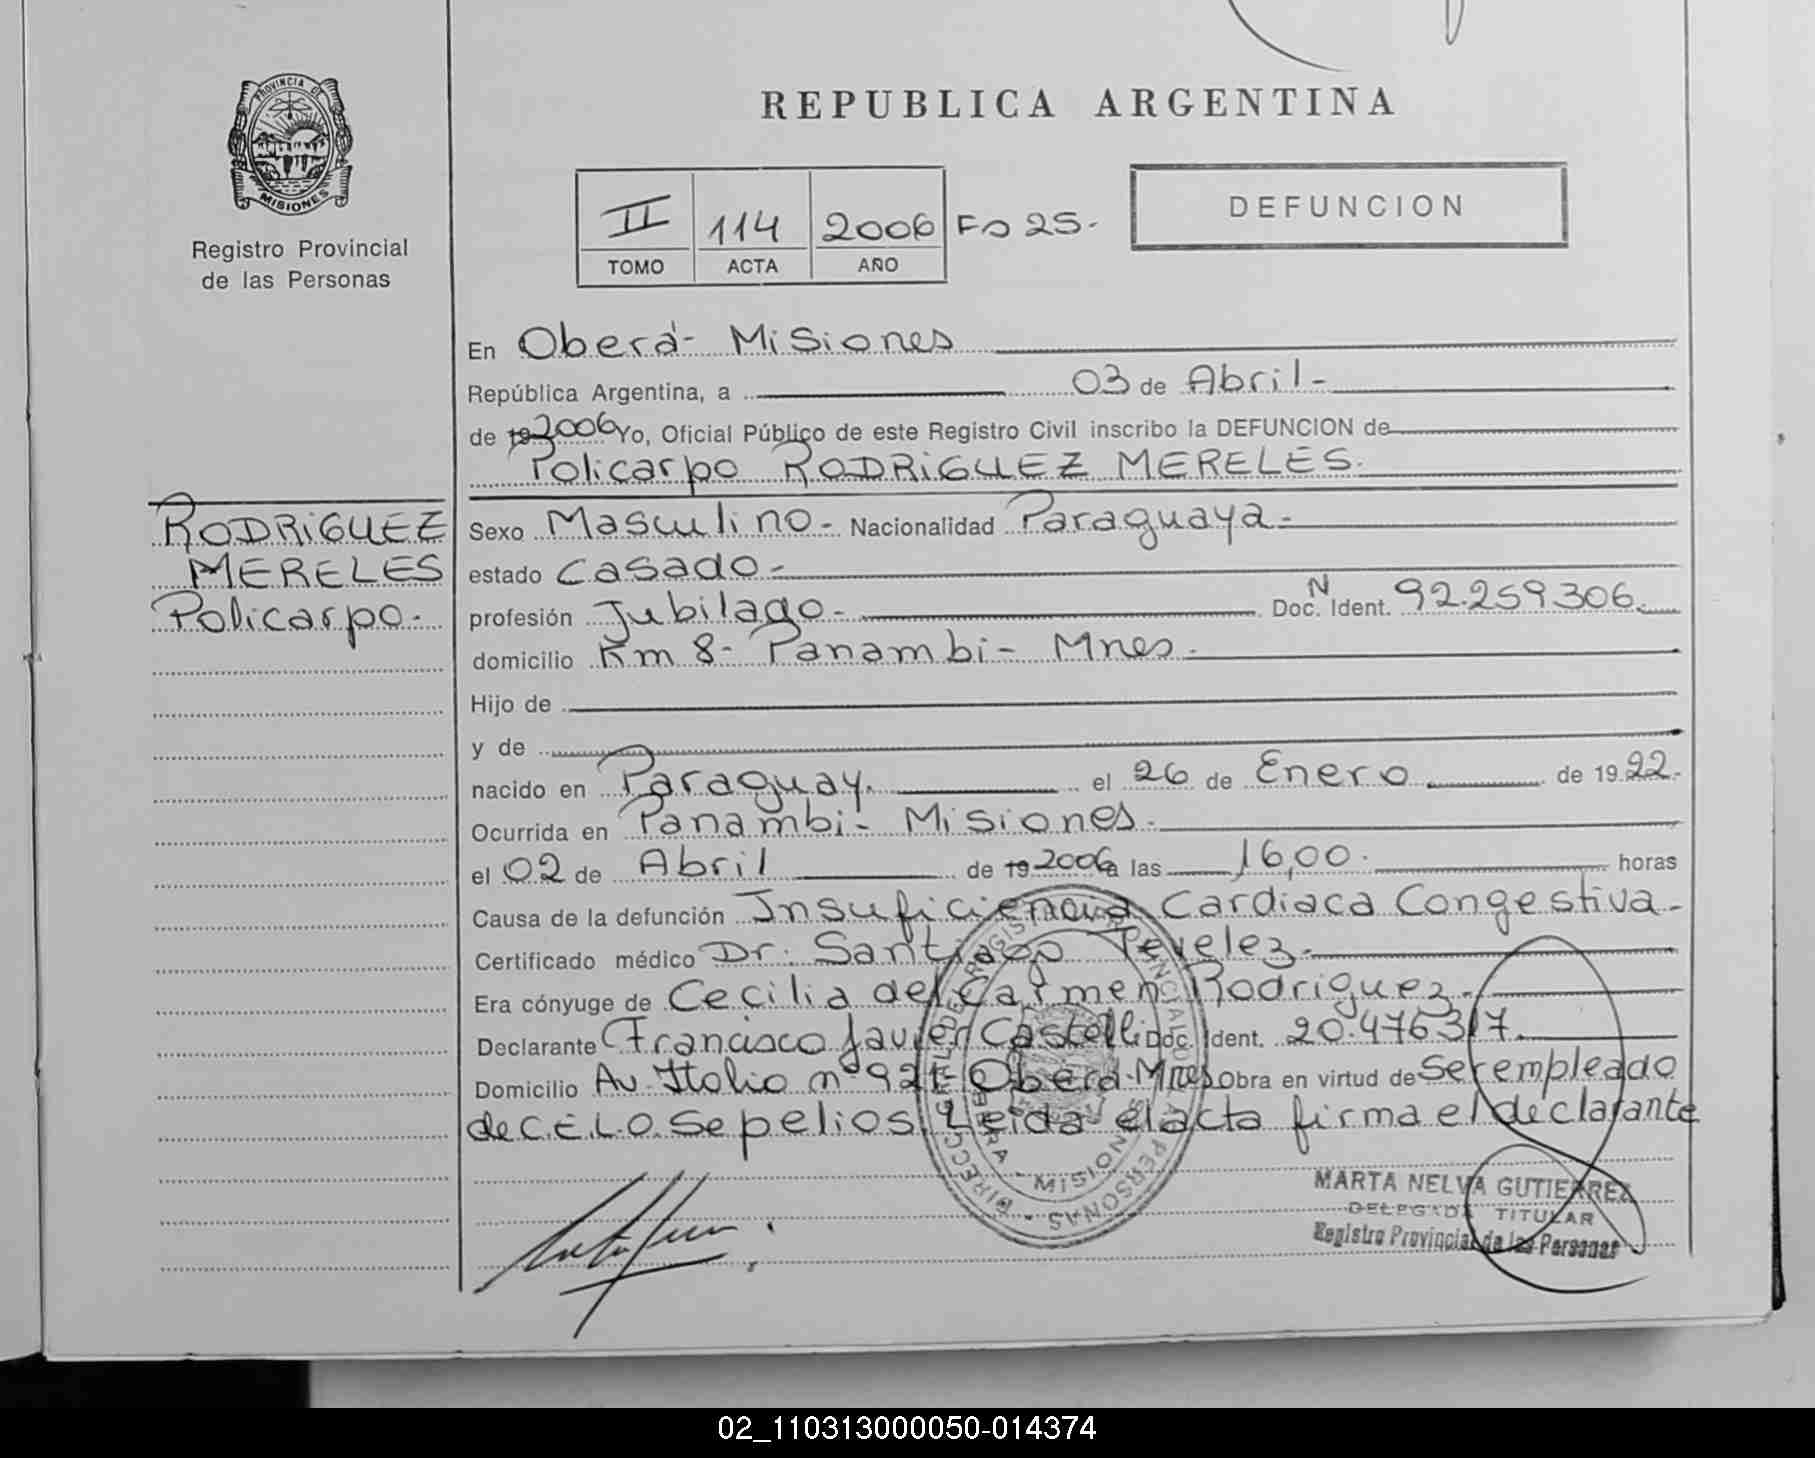 PROVINCIA DE
MISIONES
Registro Provincial
de las Personas
REPUBLICA ARGENTINA
II 114 2006 Fo 25.-
TOMO ACTA AÑO
DEFUNCION
En Oberá - Misiones
República Argentina, a 03 de Abril -
de 19 2006 Yo, Oficial Público de este Registro Civil inscribo la DEFUNCION de
Policarpo RODRIGUEZ MERELES.
RODRIGUEZ
MERELES
Policarpo.-
Sexo Masculino - Nacionalidad Paraguaya -
estado Casado -
profesión Jubilado - Doc. N Ident. 92.259.306.
domicilio Km 8 - Panambi - Mnes.
Hijo de
y de
nacido en Paraguay. el 26 de Enero de 19 22.-
Ocurrida en Panambi - Misiones.
el 02 de Abril de 19 2006 a las 16,00. horas
Causa de la defunción Insuficiencia Cardiaca Congestiva -
Certificado médico Dr. Santiago Tevelez.
Era cónyuge de Cecilia del Carmen Rodriguez.
Declarante Francisco Javier Castelli Doc. Ident. 20.476.317.
Domicilio Av. Italia nº 921 - Oberá - Mnes Obra en virtud de Ser empleado
de C.E.L.O. Sepelios. Leida el acta firma el declarante
MISIONES
MARTA NELVA GUTIERREZ
DELEGADA TITULAR
Registro Provincial de las Personas
02_110313000050-014374